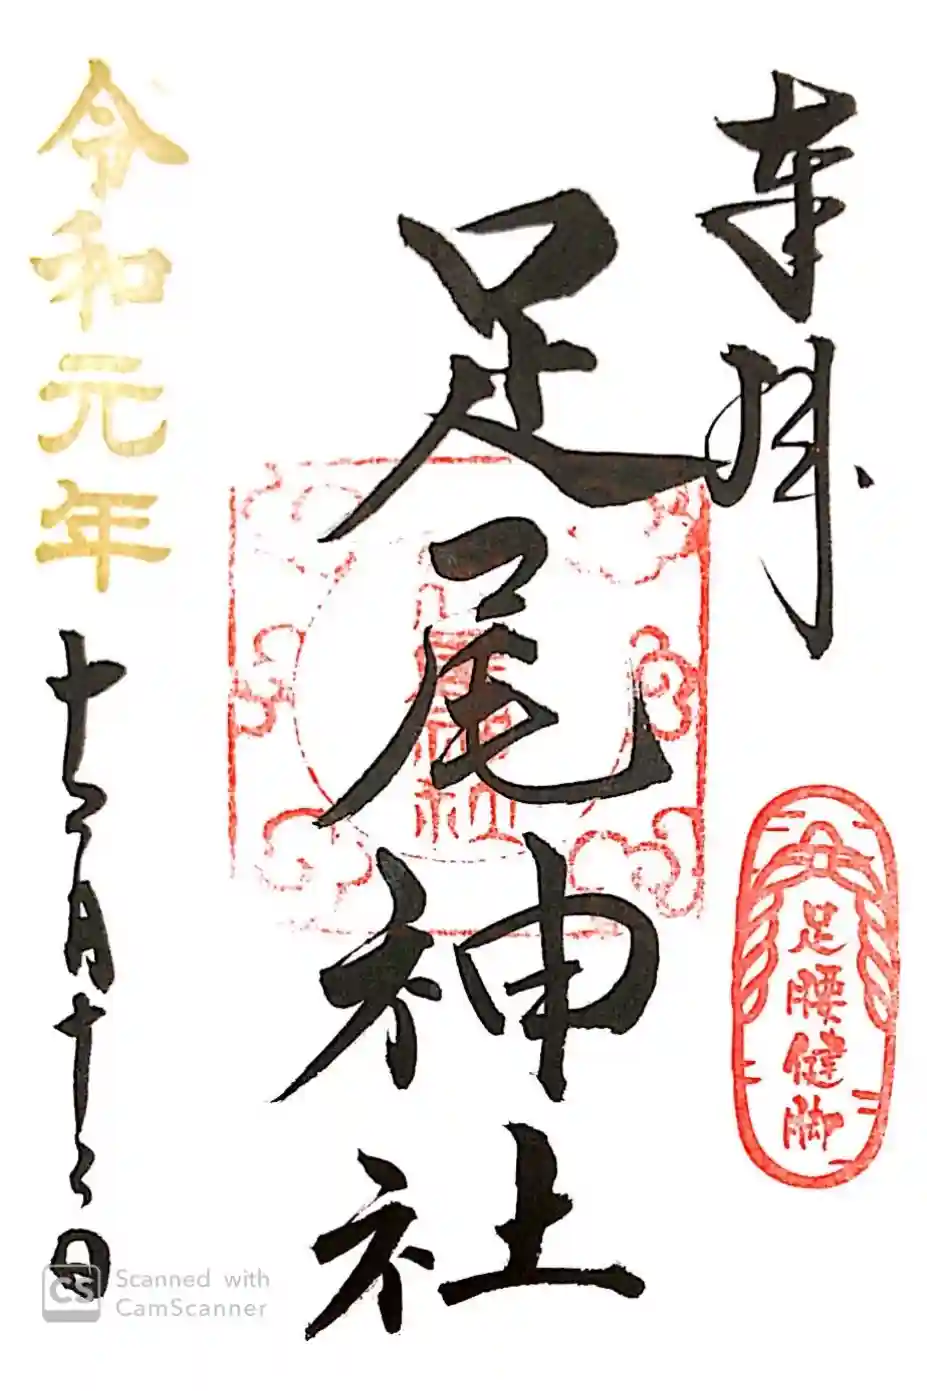 奉拝
足腰健脚
足尾神社
令和元年
十二月十二日
Scanned with
CamScanner
CS